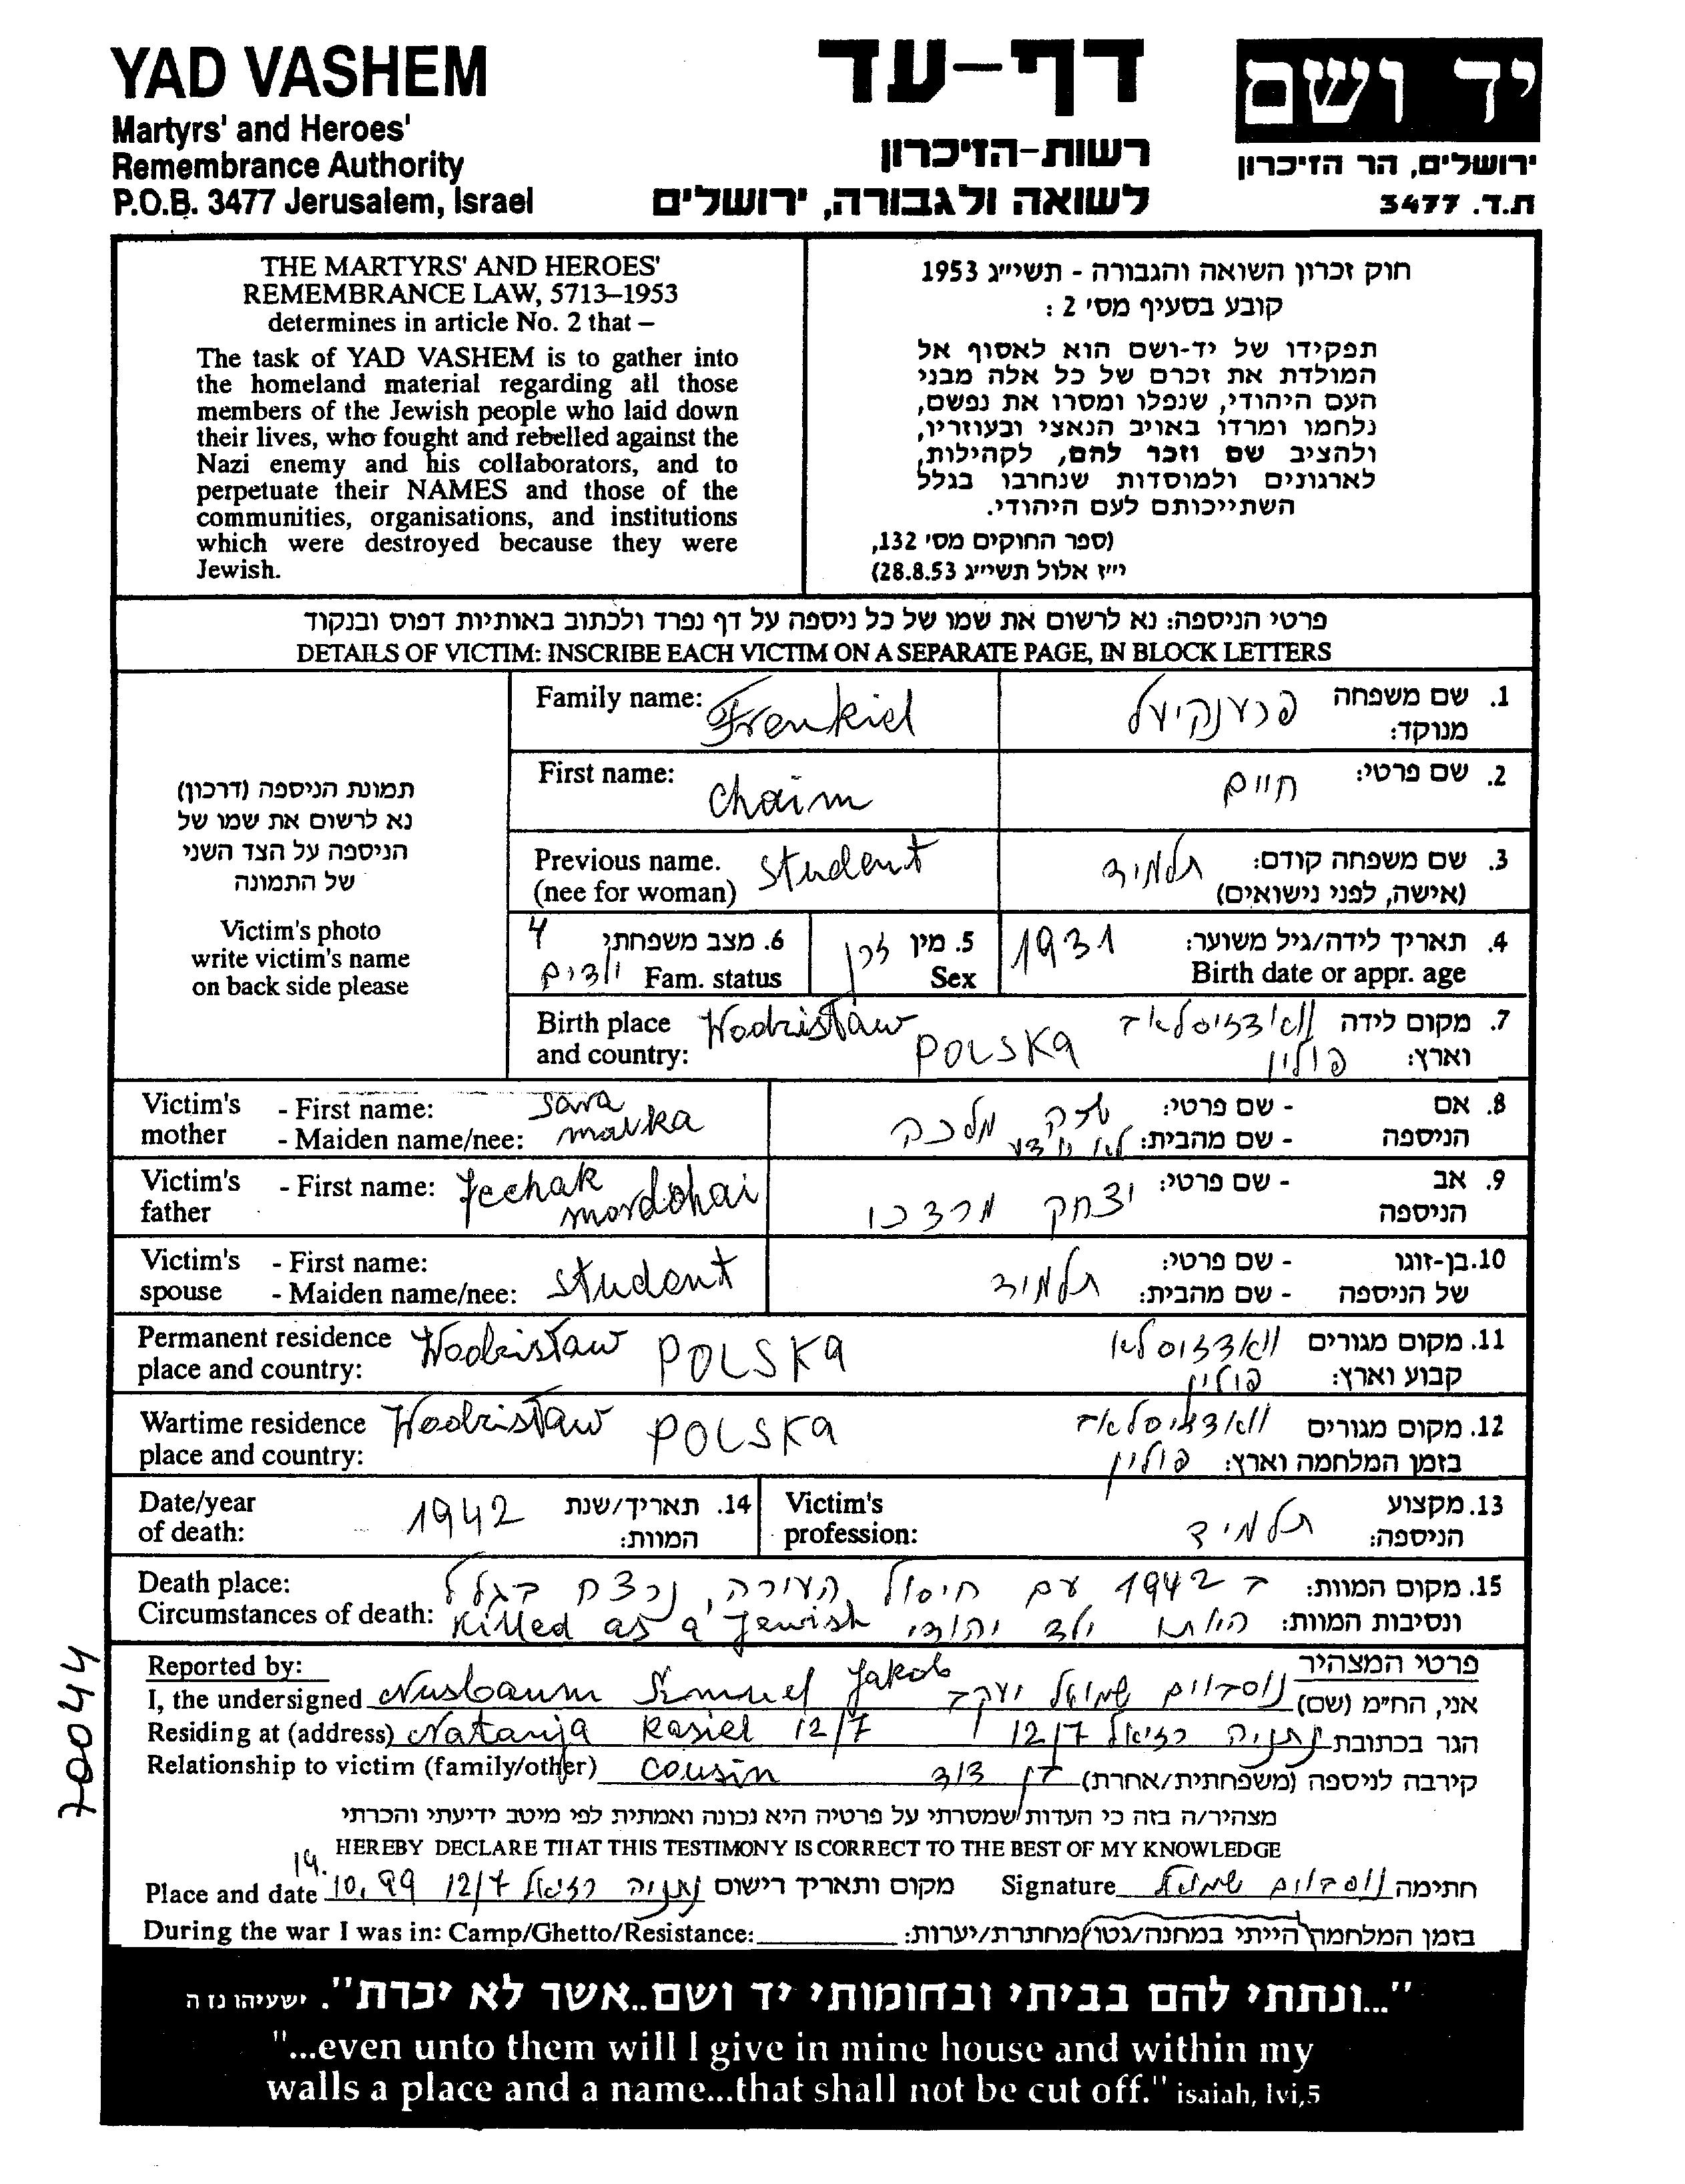 YAD VASHEM
Martyrs' and Heroes'
Remembrance Authority
P.O.B. 3477 Jerusalem, Israel
דף-עד
רשות-הזיכרון
לשואה ולגבורה, ירושלים
יד ושם
ירושלים, הר הזיכרון
ת.ד. 3477
THE MARTYRS' AND HEROES'
REMEMBRANCE LAW, 5713–1953
determines in article No. 2 that –
The task of YAD VASHEM is to gather into
the homeland material regarding all those
members of the Jewish people who laid down
their lives, who fought and rebelled against the
Nazi enemy and his collaborators, and to
perpetuate their NAMES and those of the
communities, organisations, and institutions
which were destroyed because they were
Jewish.
חוק זכרון השואה והגבורה - תשי״ג 1953
קובע בסעיף מס׳ 2 :
תפקידו של יד-ושם הוא לאסוף אל
המולדת את זכרם של כל אלה מבני
העם היהודי, שנפלו ומסרו את נפשם,
נלחמו ומרדו באויב הנאצי ובעוזריו,
ולהציב שם וזכר להם, לקהילות,
לארגונים ולמוסדות שנחרבו בגלל
השתייכותם לעם היהודי.
(ספר החוקים מס׳ 132,
י״ז אלול תשי״ג 28.8.53)
פרטי הניספה: נא לרשום את שמו של כל ניספה על דף נפרד ולכתוב באותיות דפוס ובנקוד
DETAILS OF VICTIM: INSCRIBE EACH VICTIM ON A SEPARATE PAGE, IN BLOCK LETTERS
תמונת הניספה (דרכון)
נא לרשום את שמו של
הניספה על הצד השני
של התמונה
Victim's photo
write victim's name
on back side please
Family name: Frenkiel פרענקיעל 1. שם משפחה
מנוקד:
First name: Chaim חיים 2. שם פרטי:
Previous name. student תלמיד 3. שם משפחה קודם:
(nee for woman) (אישה, לפני נישואים)
4 6. מצב משפחתי 5. מין זכר 1931 4. תאריך לידה/גיל משוער:
ילדים Fam. status Sex Birth date or appr. age
Birth place Wodzisław וואדזיסלאב 7. מקום לידה
and country: POLSKA פולין וארץ:
Victim's - First name: Sara שרה - שם פרטי: 8. אם
mother - Maiden name/nee: malka מלכה לא יודע - שם מהבית: הניספה
Victim's - First name: Jcchak יצחק מרדכי - שם פרטי: 9. אב
father mordohai הניספה
Victim's - First name: - שם פרטי: 10. בן-זוגו
spouse - Maiden name/nee: student תלמיד - שם מהבית: של הניספה
Permanent residence Wodzisław POLSKA וואדזיסלאו 11. מקום מגורים
place and country: פולין קבוע וארץ:
Wartime residence Wodzisław POLSKA וואדזיסלאב 12. מקום מגורים
place and country: פולין בזמן המלחמה וארץ:
Date/year 1942 14. תאריך/שנת Victim's תלמיד 13. מקצוע
of death: המוות: profession: הניספה:
Death place: ב 1942 עם חיסול העירה, נרצח בגלל 15. מקום המוות:
Circumstances of death: Killed as a Jewish היותו ילד יהודי ונסיבות המוות:
70044
Reported by: פרטי המצהיר
I, the undersigned Nusbaum Szmuel Jakob נוסבוים שמואל יעקב אני, הח״מ (שם)
Residing at (address) Natanja Rasiel 12/7 נתניה רזיאל 12/7 הגר בכתובת
Relationship to victim (family/other) cousin בן דוד קירבה לניספה (משפחתית/אחרת)
מצהיר/ה בזה כי העדות שמסרתי על פרטיה היא נכונה ואמתית לפי מיטב ידיעתי והכרתי
HEREBY DECLARE THAT THIS TESTIMONY IS CORRECT TO THE BEST OF MY KNOWLEDGE
Place and date 19.10.99 נתניה רזיאל 12/7 מקום ותאריך רישום Signature נוסבוים שמואל חתימה
During the war I was in: Camp/Ghetto/Resistance: בזמן המלחמה הייתי במחנה/גטו/מחתרת/יערות:
"...ונתתי להם בביתי ובחומותי יד ושם..אשר לא יכרת". ישעיהו נו ה
"...even unto them will I give in mine house and within my
walls a place and a name...that shall not be cut off." isaiah, lvi,5